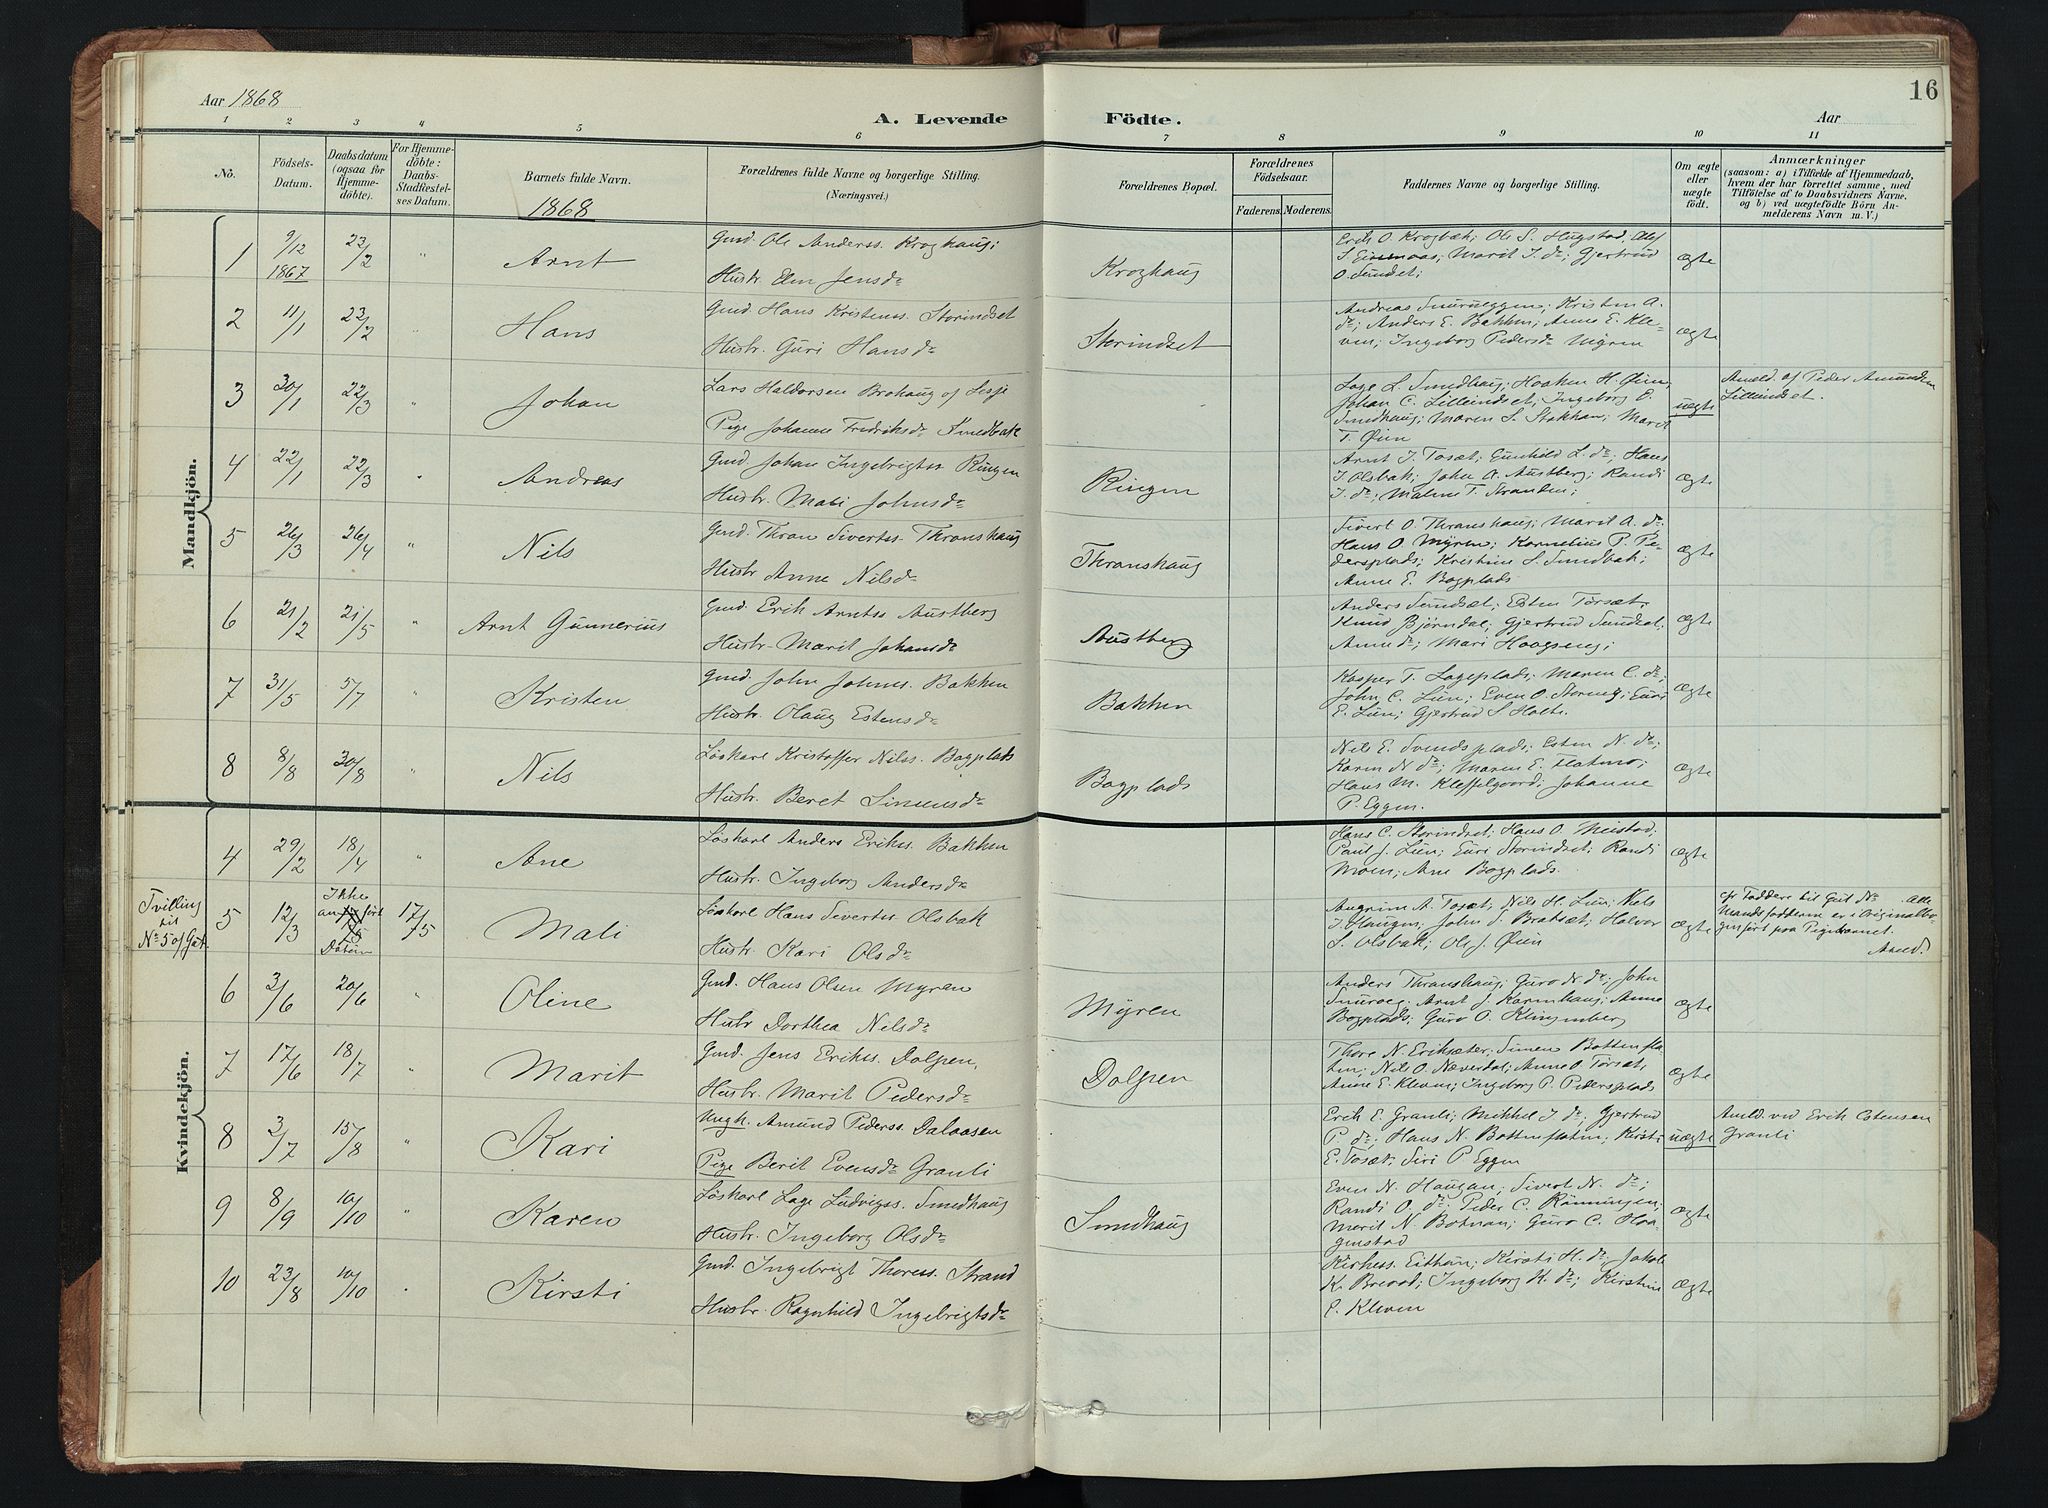 Aar 1868
A. Levende Födte.
Aar
16
1 2 3 4 5 6 7 8 9 10 11
No.
Födsels-Datum.
Daabsdatum (ogsaa for Hjemme-döbte).
For Hjemme-döbte: Daabs-Stadfæstel-ses Datum.
Barnets fulde Navn.
1868
Forældrenes fulde Navne og borgerlige Stilling. (Næringsvei.)
Forældrenes Bopæl.
Forældrenes Födselsaar.
Faderens. Moderens.
Faddernes Navne og borgerlige Stilling.
Om ægte eller uægte födt.
Anmærkninger (saasom: a) i Tilfælde af Hjemmedaab, hvem der har forrettet samme, med Tilföielse af to Daabsvidners Navne, og b) ved uægtefödte Börn An-melderens Navn m. V.)
Mandkjön.
1 9/12 1867 23/2 " Arnt
Gmd. Ole Anderss. Kroghaug;
Hustr. Elen Jensdr
Kroghaug
Erik O. Krogbæk; Ole S. Hugstad, Olef
S. Eisenaas; Marit I. dr; Gjertrud
O. Sundset;
ægte
2 11/1 23/2 " Hans
Gmd. Hans Kristens. Storindset
Hustr. Guri Hansdr
Storindset
Andreas Snurueggen; Kristen A.
dr; Anders E. Bakken; Anne E. Kle-
ven; Ingeborg Pedersdr Myren
ægte
3 30/1 22/3 " Johan
Lars Haldorsen Brohaug of Lesje
Pige Johanne Fredriksdr Smedbak
Lage L. Smedhaug; Haaken H. Øien,
Johan C. Lilleindset; Ingeborg O.
Smedhaug; Maren S. Stokkan; Marit
T. Øien
uægte
Anmeld. af Peder Amundsen
Lilleindset.
4 22/1 22/3 " Andreas
Gmd. Johan Ingebrigtss Ringen
Hustr. Mali Johnsdr
Ringen
Arnt J. Tosæt; Gunhild L. dr; Hans
J. Olsbak; John A. Austberg; Randi
J. dr; Malene T. Stranden;
ægte
5 26/3 26/4 " Nils
Gmd. Thron Sivertss. Thronshaug
Hustr Anne Nilsdr
Thronshaug
Sivert O. Thronshaug; Marit A. dr.
Hans O. Myren; Kornelius P. Pe-
dersplads; Kristine S. Smedbak;
Anne E. Bogplads
ægte
6 21/2 21/5 " Arnt Gunnerius
Gmd. Erik Arntss Austberg
Hustr. Marit Johansdr
Austberg
Anders Sundset; Esten Torsæt,
Knud Bjørndal; Gjertrud Sundset,
Anne dr; Mari Haagseng;
ægte
7 31/5 5/7 " Kristen
Gmd. John Johnss. Bakken
Hustr. Olaug Estensdr
Bakken
Kasper T. Lageplads; Maren C. dr;
John C. Lien; Even O. Storeng; Guri
E. Lien; Gjertrud S. Holte.
ægte
8 8/8 30/8 " Nils
Løskarl Kristoffer Nilss. Bogplads
Hustr. Beret Simensdr
Bogplads
Nils E. Svendsplads; Esten N. dr;
Karen N dr; Maren E. Flatmo;
Hans M. Kleffelgaard; Johanne
P. Eggen.
ægte
Kvindekjön.
4 29/2 18/4 " Ane
Løskarl Anders Erikss. Bakken
Hustr. Ingeborg Andersdr
Hans C. Storindset; Hans O. Meistad;
Paul J. Lien; Guri Storindset; Randi
Moen; Ane Bogplads.
ægte
Tvilling
til
No 5 of Gut.
5 12/3 Ikke anført Datum 17/5 Mali
Løskarl Hans Sivertss. Olsbak
Hustr. Kari Olsdr
Angrim A. Tosæt; Nils H. Lien; Nils
J. Haugen; John S. Bratsæt; Halvor
S. Olsbak; Ole J. Øien
ægte
cfr Faddere til Gut No . Alle
Mandsfadderne er i Originalbo-
gen ført paa Pigebarnet.
Anm.
6 3/6 20/6 " Oline
Gmd. Hans Olsen Myren
Hustr Dorthea Nilsdr
Myren
Anders Thronshaug; Guro N dr; John
Snuroeg; Arnt J. Karenhaug; Anne
Bogplads; Guro O. Klingenberg
ægte
7 17/6 18/7 " Marit
Gmd. Jens Erikss. Dolpen,
Hustr. Marit Pedersdr
Dolpen
Thore N. Eriksæter; Simen Bottenfla-
ten; Nils O. Næverdal; Anne O. Torsæt,
Anne E. Kleven; Ingeborg P. Pedersplads
ægte
8 3/7 15/8 " Kari
Ungk. Amund Pederss. Dalaasen
Pige Berit Evensdr Granli
Erik E. Granli; Mikkel J dr; Gjertrud
P. dr; Hans N. Bottenflaten; Kirsti
E. Tosæt; Siri P. Eggen
uægte
Anmld. ved Erik Estensen
Granli
9 8/9 10/10 " Karen
Løskarl Lage Ludvigss. Smedhaug
Hustr. Ingeborg Olsdr
Smedhaug
Even N. Haugan; Sivert N. dr;
Randi O. dr; Peder C. Rønningen;
Marit N. Botnan; Guro C. Haa-
genstad
ægte
10 23/8 10/10 " Kirsti
Gmd. Ingebrigt Thoress. Strand
Hustr. Ragnhild Ingebrigtsdr
Eithun; Kirsti H. dr; Jakob
K. Brevad; Ingeborg K. dr; Kirstine
E. Kleven
ægte